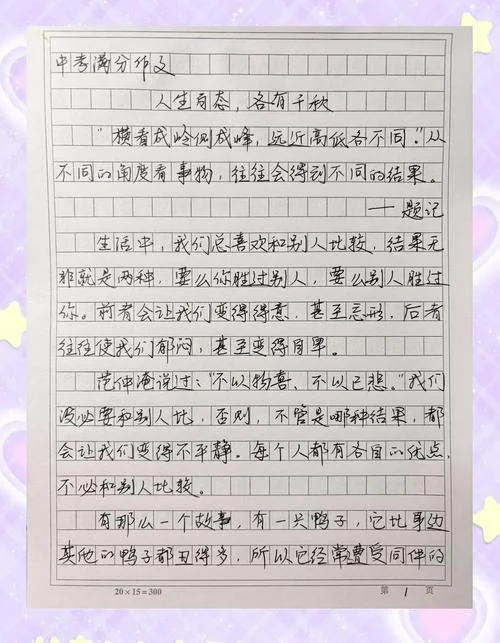 中考满分作文
人生百态，各有千秋
“横看成岭侧成峰，远近高低各不同。”从
不同的角度看事物，往往会得到不同的结果。
——题记
生活中，我们总喜欢和别人比较，结果无
非就是两种，要么你胜过别人，要么别人胜过
你。前者会让我们变得得意，甚至忘形，后者
往往使我们郁闷，甚至变得自卑。
范仲淹说过：“不以物喜、不以己悲。”我们
没必要和别人比，否则，不管是哪种结果，都
会让我们变得不平静。每个人都有各自的优点，
不必和别人比较。
有那么一个故事，有一只鸭子，它比身边
其他的鸭子都丑得多，所以它经常遭受同伴的
20×15=300 第 1 页